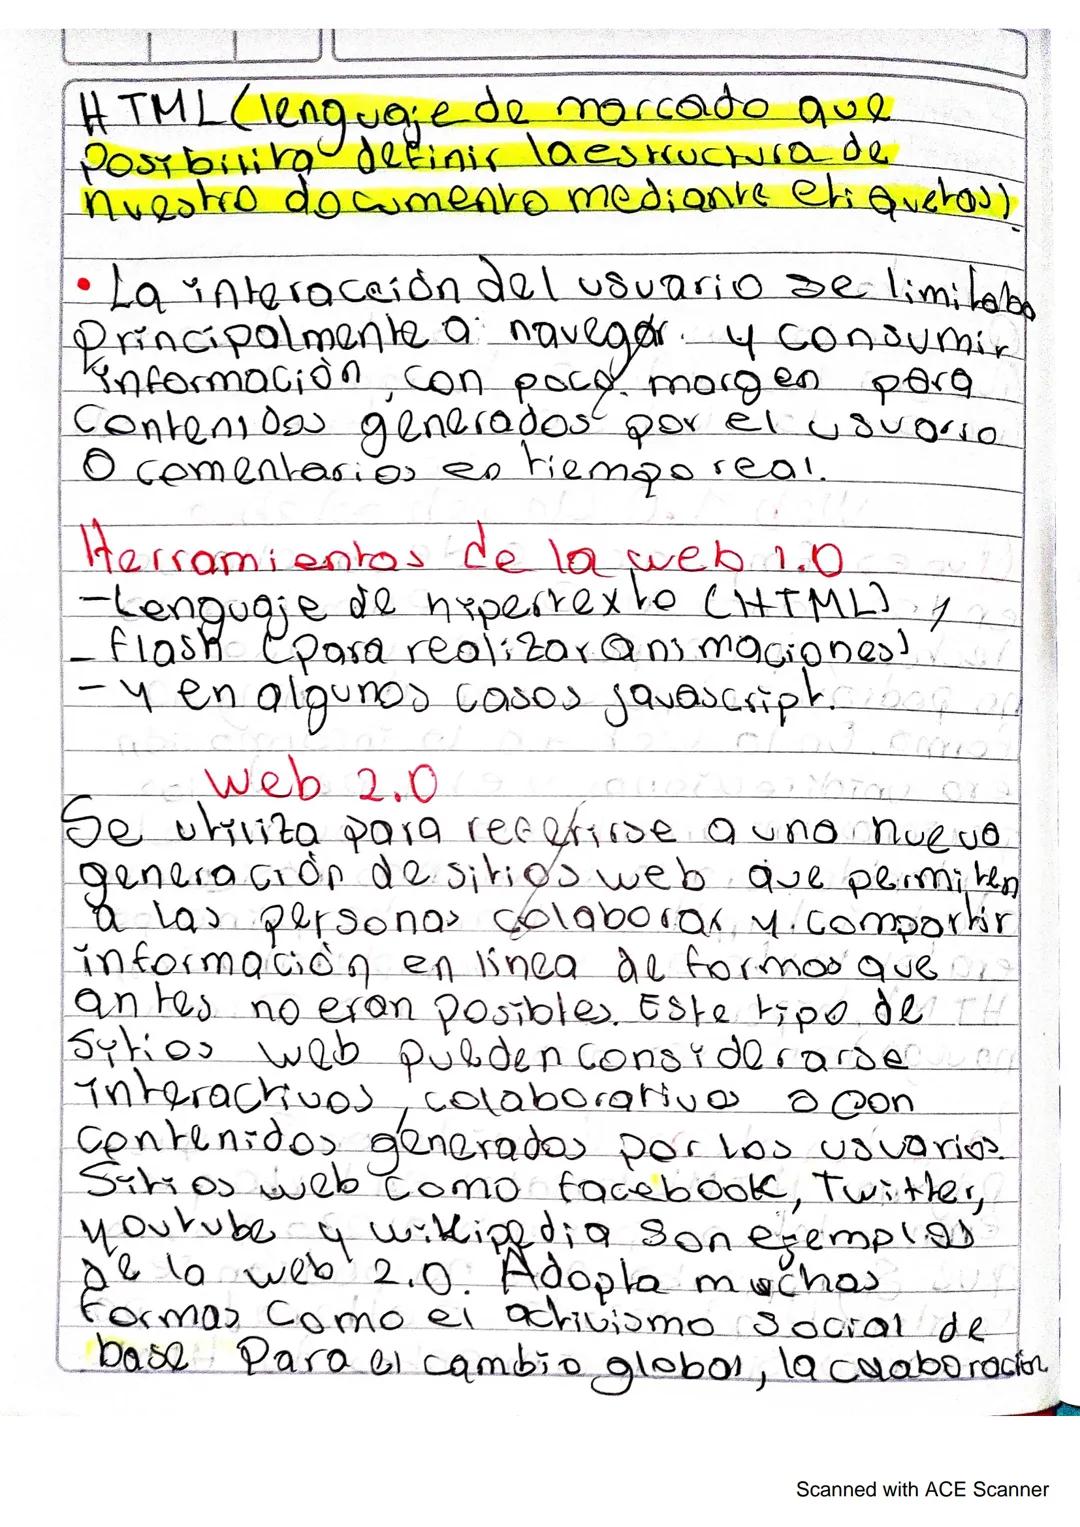 HTML (lenguaje de marcado que
posibilita definir la estructura de
nuestro documento mediante etiquetas).
• La interacción del usuario se limitaba
principalmente a navegar y consumir
información, con poco margen para
contenidos generados por el usuario
o comentarios en tiempo real.
Herramientas de la web 1.0
- Lenguaje de hipertexto (HTML) y
- flash (para realizar animaciones)
- y en algunos casos javascript.
Web 2.0
Se utiliza para referirse a una nueva
generación de sitios web que permiten
a las personas colaborar y compartir
información en línea de formas que
antes no eran posibles. Este tipo de
sitios web pueden considerarse
interactivos, colaborativos o con
contenidos generados por los usuarios.
Sitios web como facebook, Twitter,
youtube y wikipedia son ejemplos
de la web 2.0. Adopta muchas
formas como el activismo social de
base para el cambio global, la colaboración
Scanned with ACE Scanner